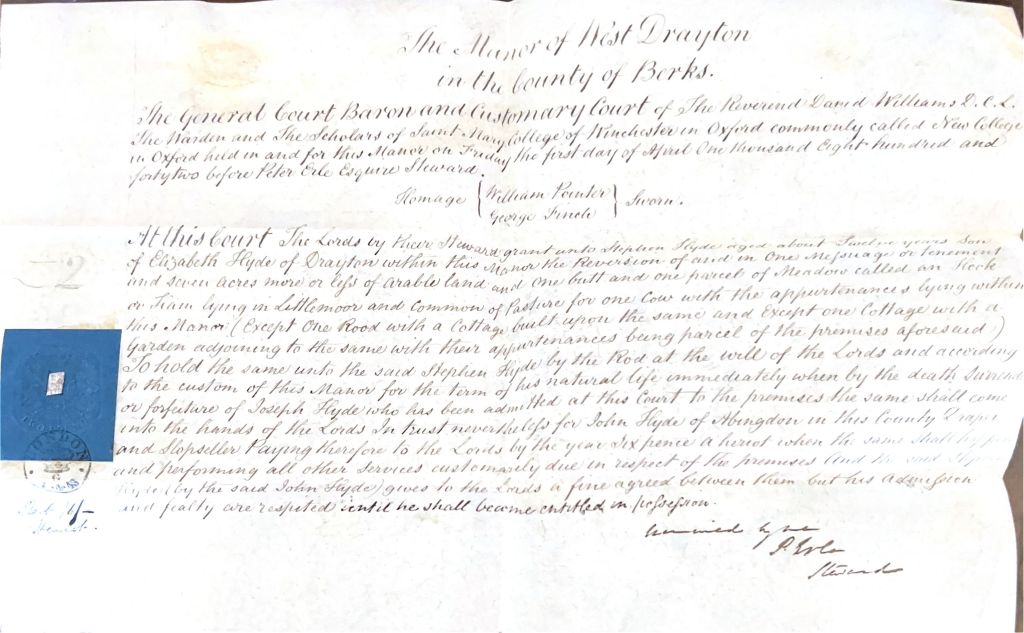 The Manor of West Drayton
in the County of Berks.
The General Court Baron and Customary Court of The Reverend David Williams D. C. L.
The Warden and The Scholars of Saint Mary College of Winchester in Oxford commonly called New College
in Oxford held in and for this Manor on Friday the first day of April One thousand Eight hundred and
fortytwo before Peter Erle Esquire Steward.
Homage { William Pointer } Sworn.
George Finch
At this Court The Lords by their Steward grant unto Stephen Hyde aged about Twelve years Son
of Elizabeth Hyde of Drayton within this Manor the Reversion of and in One Messuage or tenement
and seven acres more or less of arable land and One butt and one parcel of Meadow called an Hook
or Ham lying in Littlemoor and Common of Pasture for one Cow with the appurtenances lying within
this Manor (Except One Rood with a Cottage built upon the same and Except one Cottage with a
Garden adjoining to the same with their appurtenances being parcel of the premises aforesaid)
To hold the same unto the said Stephen Hyde by the Rod at the will of the Lords and according
to the custom of this Manor for the term of his natural life immediately when by the death surrend
or forfeiture of Joseph Hyde who has been admitted at this Court to the premises the same shall come
into the hands of the Lords In trust nevertheless for John Hyde of Abingdon in this County Draper
and Slopseller Paying therefore to the Lords by the year Six pence a heriot when the same shall
and performing all other services customarily due in respect of the premises And the said
Hyde (by the said John Hyde) gives to the Lords a fine agreed between them but his admission
and fealty are respited until he shall become entitled in possession.
Examined by me
P. Erle
Steward
LONDON